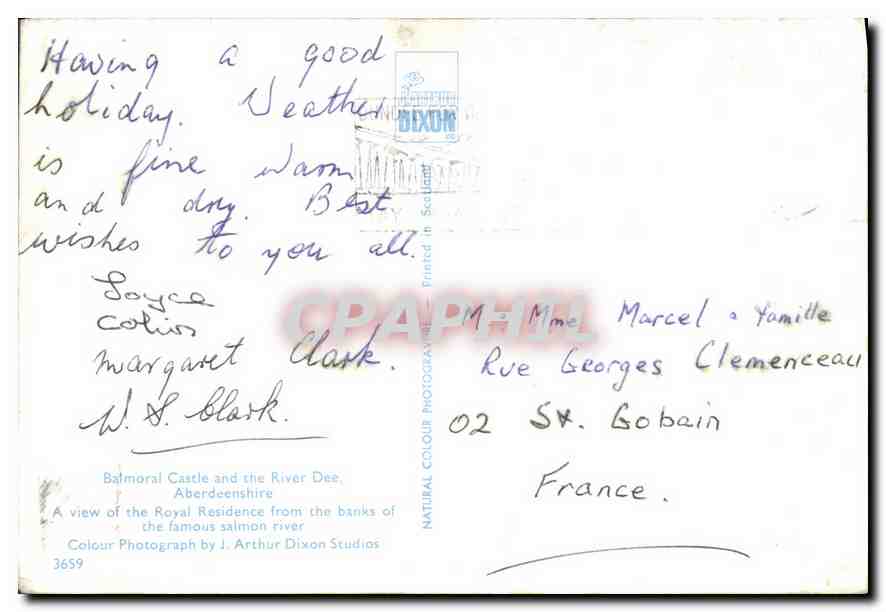 Having a good
holiday. Weather
is fine warm
and dry. Best
wishes to you all.
Joyce
Colin
Margaret Clark.
W. S. Clark.
Balmoral Castle and the River Dee,
Aberdeenshire
A view of the Royal Residence from the banks of
the famous salmon river
Colour Photograph by J. Arthur Dixon Studios
3659
NATURAL COLOUR PHOTOGRAVURE — Printed in Scotland
DIXON
CPAPHIL
M. Mme Marcel & famille
Rue Georges Clemenceau
02 St. Gobain
France.